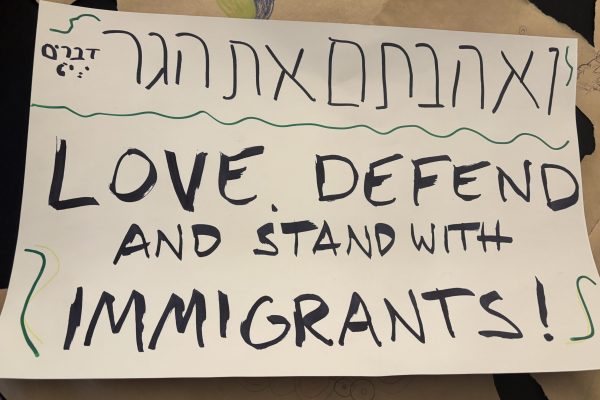 ואהבתם את הגר
דברים
LOVE, DEFEND
AND STAND WITH
IMMIGRANTS!